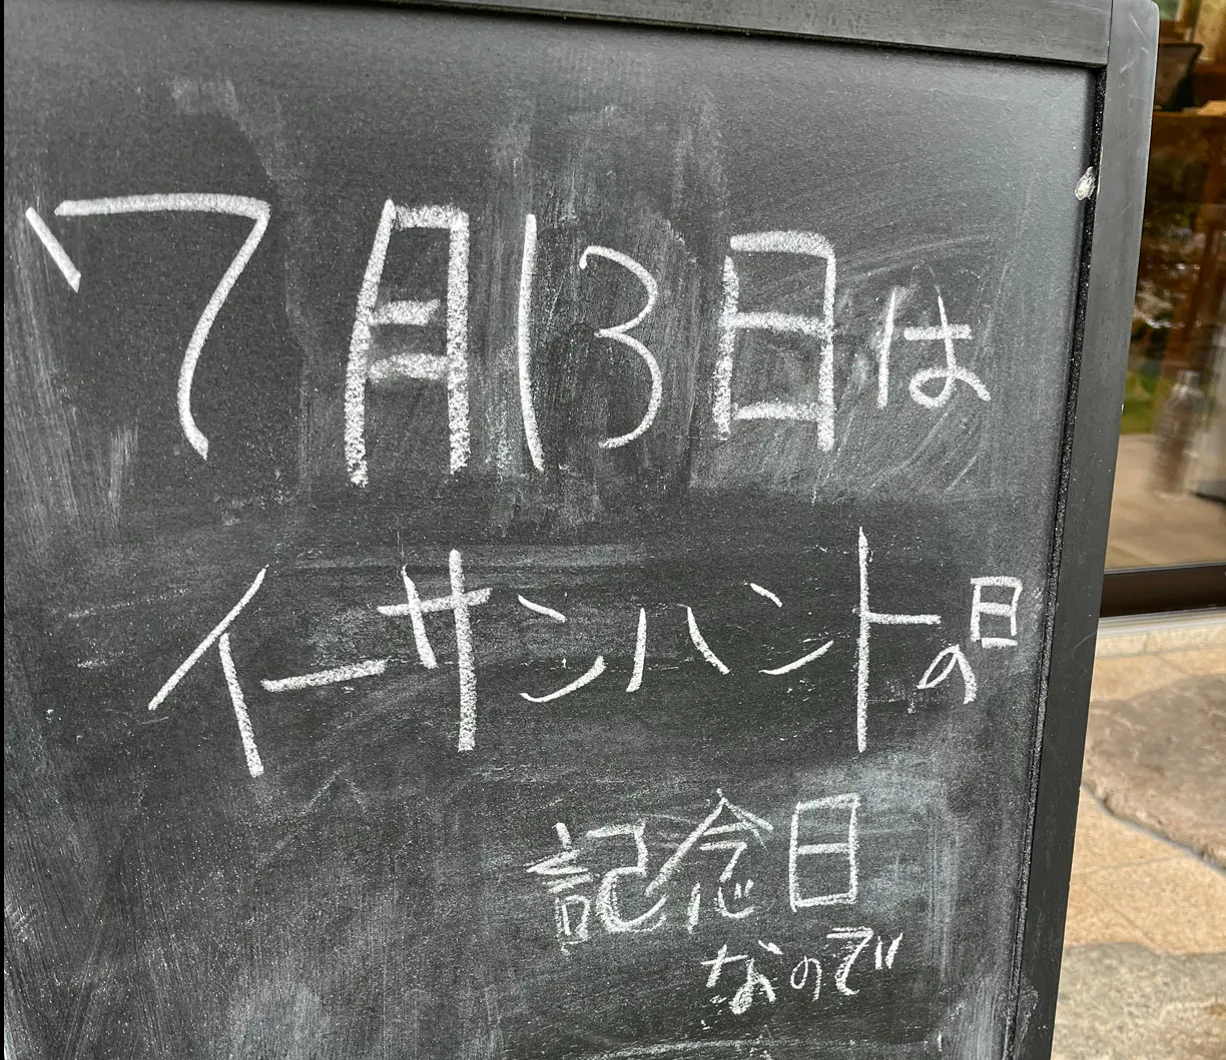 7月13日は
イーサンハントの日
記念日
なので